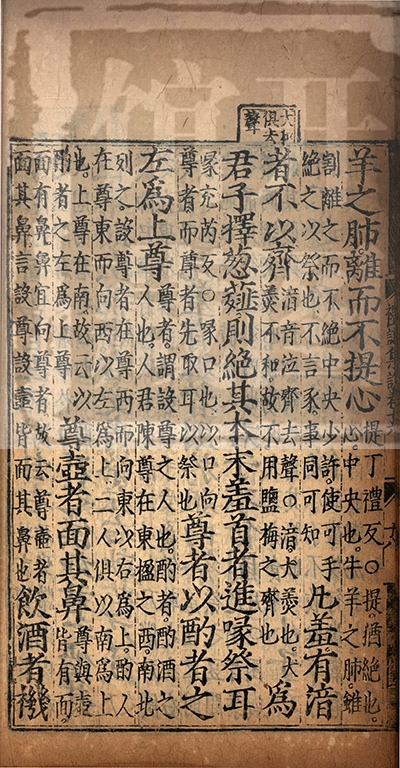 大和
俱去
聲
羊之肺離而不提心
提丁禮反○提猶絶也
心中央也牛羊之肺雖
割離之而不絶中央少許使可手
絶之以祭也不言豕事同可知
凡羞有湆
者不以齊
湆音泣齊去聲○湆大羹也大
羹不和故不用鹽梅之齊也
為
君子擇葱薤則絶其本末羞首者進喙祭耳
喙充芮反○喙口也以口向
尊者而尊者先取耳以祭也
尊者以酌者之
左為上尊
尊者謂設尊之人也酌者酌酒之
人也人君陳尊在東楹之西南北
列之設尊者在尊西而向東以右為上酌人
在尊東而向西以左為上二人俱以南為上
也上尊在南故云以
酌者之左為上尊
尊壺者面其鼻
尊與壺
皆有面
面有鼻鼻宜向尊者故云尊壺者
面其鼻言設尊設壺皆面其鼻也
飲酒者禨